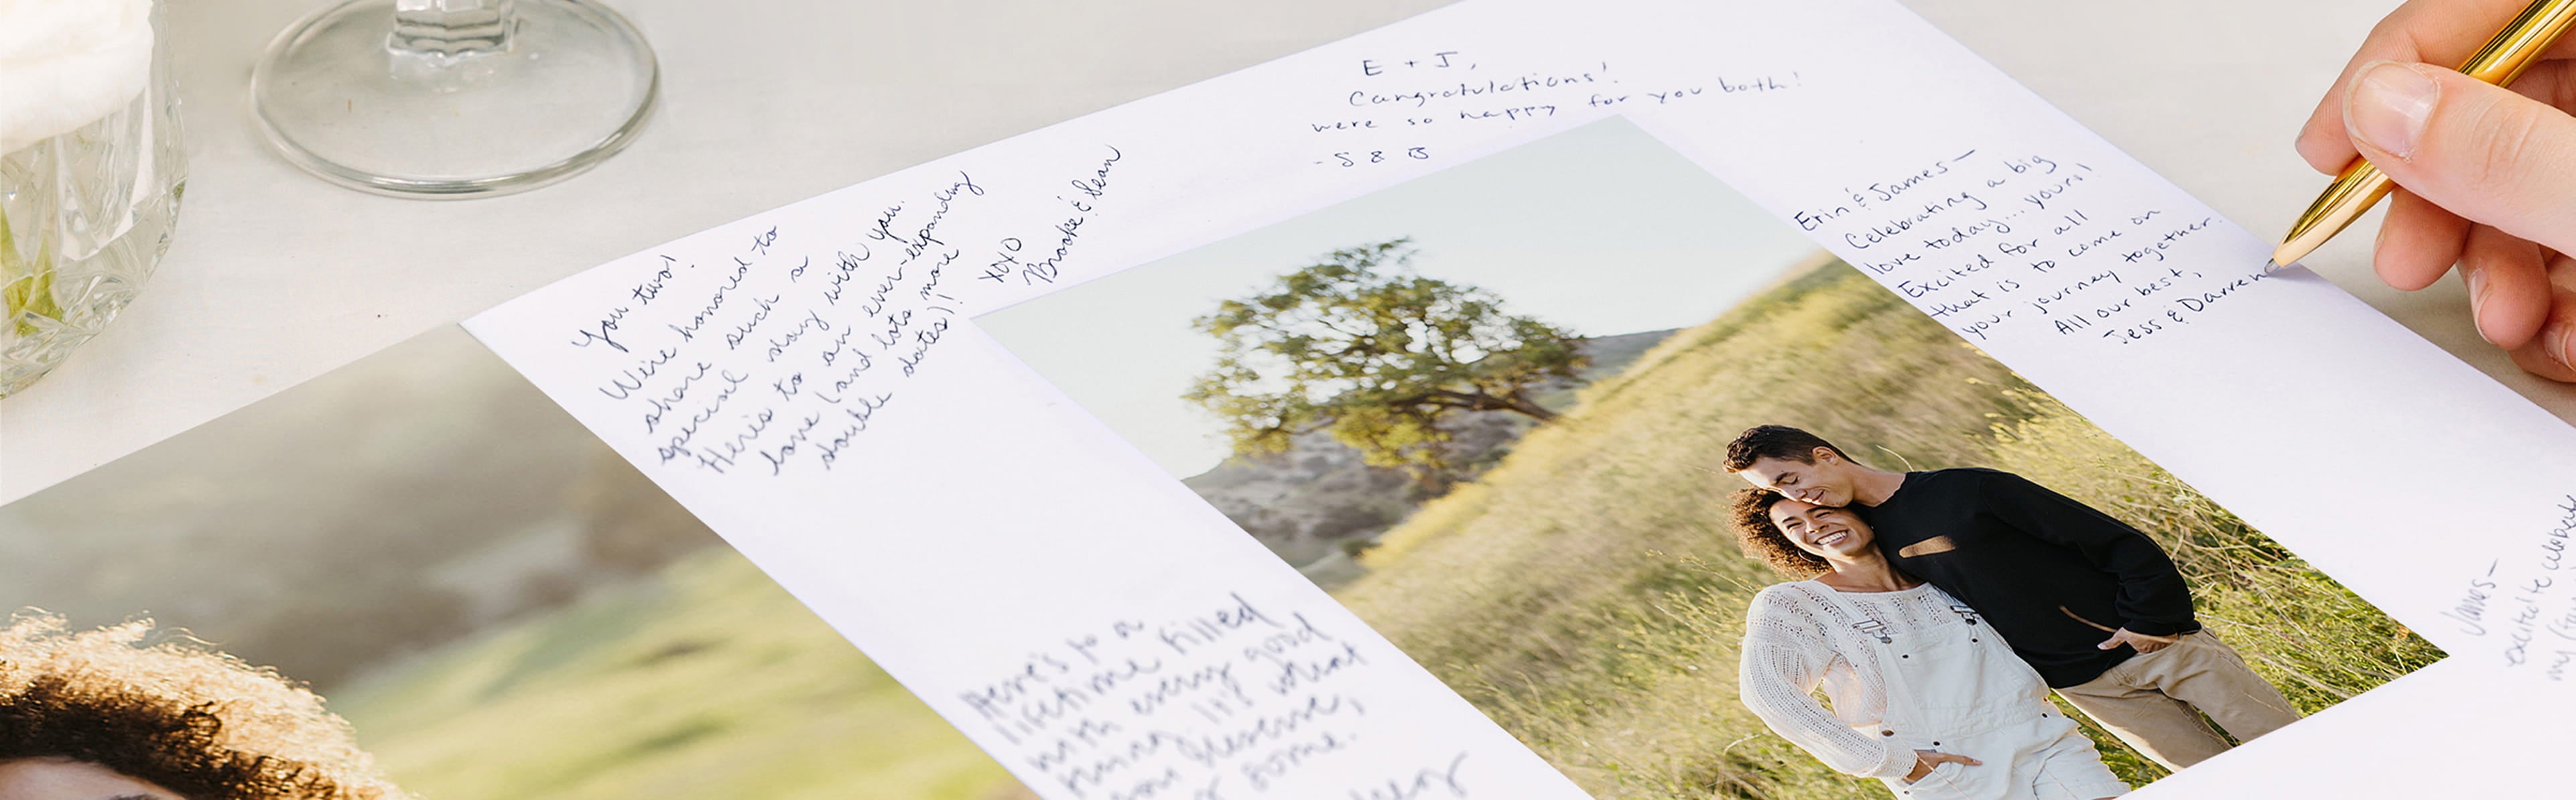 You two!
We're honored to
share such a
special day with you.
Here's to an ever-expanding
love (and lots more
double dates)!
XOXO
Brooke & Sean
E + J,
Congratulations!
were so happy for you both!
- S & B
Erin & James—
Celebrating a big
love today... yours!
Excited for all
that is to come on
your journey together.
All our best,
Jess & Darren
Here's to a
lifetime filled
with every good
thing. It's what
you deserve,
some.
James—